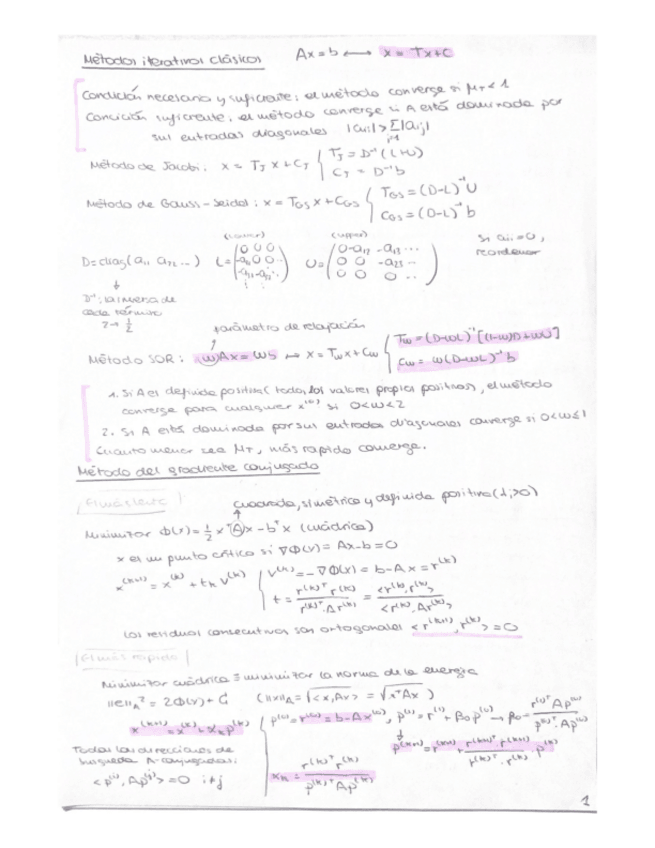 Métodos iterativos clásicos Ax=b ⟷ x = Tx+C
Condición necesaria y suficiente: el método converge si μT < 1
Condición suficiente: el método converge si A está dominada por
sus entradas diagonales |aii| > Σ|aij|
Método de Jacobi: x = TJ x + CJ { TJ = D⁻¹(L+U)
CJ = D⁻¹b
Método de Gauss-Seidel: x = TGS x + CGS { TGS = (D-L)⁻¹U
CGS = (D-L)⁻¹b
(lower) (upper) Si aii=0,
reordenar
D=diag(a11 a22 ...) L= U=
0 0 0
0 -a12 -a13 ...
0 0 -a23 ...
0 0 0 ...
D⁻¹: la inversa de
cada término
2→ 1/2
parámetro de relajación
Método SOR: ωAx = ωb ↔ x = Tωx + Cω { Tω = (D-ωL)⁻¹[(1-ω)D+ωU]
Cω = ω(D-ωL)⁻¹b
1. Si A es definida positiva (todos los valores propios positivos), el método
converge para cualquier x⁽⁰⁾ si 0<ω<2
2. Si A está dominada por sus entradas diagonales converge si 0<ω≤1
Cuanto menor sea μT, más rápido converge.
Método del gradiente conjugado
El más lento
cuadrada, simétrica y definida positiva (λi>0)
Minimizar Φ(x) = 1/2 xᵀAx - bᵀx (cuádrica)
x es un punto crítico si ∇Φ(x) = Ax-b=0
x⁽ᵏ⁺¹⁾ = x⁽ᵏ⁾ + tk v⁽ᵏ⁾ { v⁽ᵏ⁾ = -∇Φ(x) = b-Ax = r⁽ᵏ⁾
t = r⁽ᵏ⁾ᵀ r⁽ᵏ⁾ / r⁽ᵏ⁾ᵀ·A r⁽ᵏ⁾ = <r⁽ᵏ⁾, r⁽ᵏ⁾> / <r⁽ᵏ⁾, A r⁽ᵏ⁾>
Los residuos consecutivos son ortogonales <r⁽ᵏ⁺¹⁾, r⁽ᵏ⁾> = 0
El más rápido
Minimizar cuádrica ≡ minimizar la norma de la energía
||e||A² = 2Φ(x) + C (||x||A = √<x,Ax> = √xᵀAx)
x⁽ᵏ⁺¹⁾ = x⁽ᵏ⁾ + αk p⁽ᵏ⁾ { p⁽⁰⁾ = r⁽⁰⁾ = b-Ax⁽⁰⁾, p⁽¹⁾ = r⁽¹⁾ + β0 p⁽⁰⁾ → β0 = r⁽¹⁾ᵀAp⁽⁰⁾ / p⁽⁰⁾ᵀAp⁽⁰⁾
p⁽ᵏ⁺¹⁾ = r⁽ᵏ⁺¹⁾ + r⁽ᵏ⁺¹⁾ᵀ r⁽ᵏ⁺¹⁾ / r⁽ᵏ⁾ᵀ·r⁽ᵏ⁾ · p⁽ᵏ⁾
Todas las direcciones de
búsqueda A-conjugadas:
<p⁽ⁱ⁾, Ap⁽ʲ⁾> = 0 i≠j
αk = r⁽ᵏ⁾ᵀ r⁽ᵏ⁾ / p⁽ᵏ⁾ᵀAp⁽ᵏ⁾
1